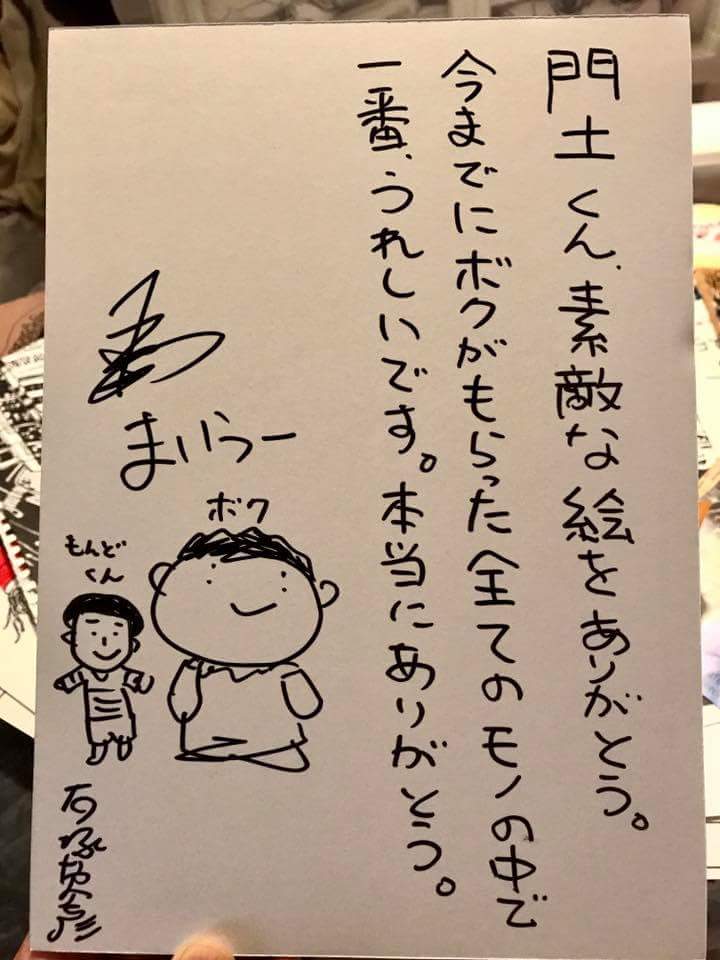 門土くん、素敵な絵をありがとう。
今までにボクがもらった全てのモノの中で
一番、うれしいです。本当にありがとう。
まいうー
ボク
もんど
くん
石塚英彦